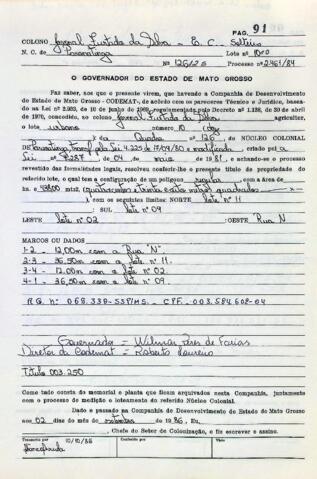 PAG. 91
COLONO Juvenal Furtado da Silva - E. C. Solteiro
N. C. de Paranatinga Lote nº 10
Nº 126/25 Processo nº 2461/84
O GOVERNADOR DO ESTADO DE MATO GROSSO
Faz saber, aos que o presente virem, que havendo a Companhia de Desenvolvimento
do Estado de Mato Grosso - CODEMAT-, de acôrdo com os pareceres Técnico e Jurídico, basea-
do na Lei nº 2.925, de 10 de junho de 1969, regulamentada pelo Decreto nº 1.138, de 30 de abril
de 1970, concedido, ao colono Juvenal Furtado da Silva agricultor,
o lote urbano nº 10 (dez)
da Quadra nº 126 NÚCLEO COLONIAL
de Paranatinga 4.225 de 17/09/80 e modificada, criado pela
Lei nº 4.287 de 04 de maio de 1981, e achando-se o processo
revestido das formalidades legais, resolveu conferir-lhe o presente título de propriedade do
referido lote, o qual tem a configuração de um polígono regular com a área de
438,00 mts2. (quatrocentos e trinta e oito metros quadrados) -x-
com os seguintes limites: NORTE lote nº 11
SUL lote nº 09
LESTE lote nº 02 OESTE Rua N
MARCOS OU DADOS
1-2 - 12,00m com a Rua "N".
2-3 - 36,50m com o lote nº 11.
3-4 - 12,00m com o lote nº 02
4-1 - 36,50m com o lote nº 09.
R.G. nº 068.339-SSP/MS. - CPF. 003.584.608-04
Governador = Wilmar Peres de Farias
Diretor da Codemat = Roberto Loureiro
Título 003.250
Tudo consta do memorial e planta que ficam arquivados nesta Companhia, juntamente
com o processo de medição e loteamento do referido Núcleo Colonial.
Dado e passado na Companhia de Desenvolvimento do Estado de Mato Grosso
aos 02 dias do mês de setembro de 1986, Eu,
, Chefe do Setor de Colonização, o fiz escrever e assino.
Transcrito por 10/10/86
Conferido por
Visto